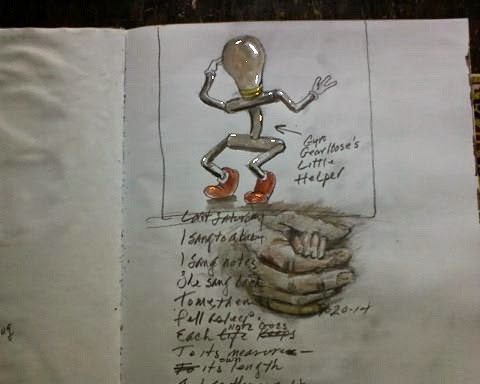 Gyro
Gearloose's
Little
Helper
Last Saturday
I sang to a baby
I sang notes
She sang back
To me, then
fell asleep.
Each life note goes keeps
To its measure —
To its own length
-20-14